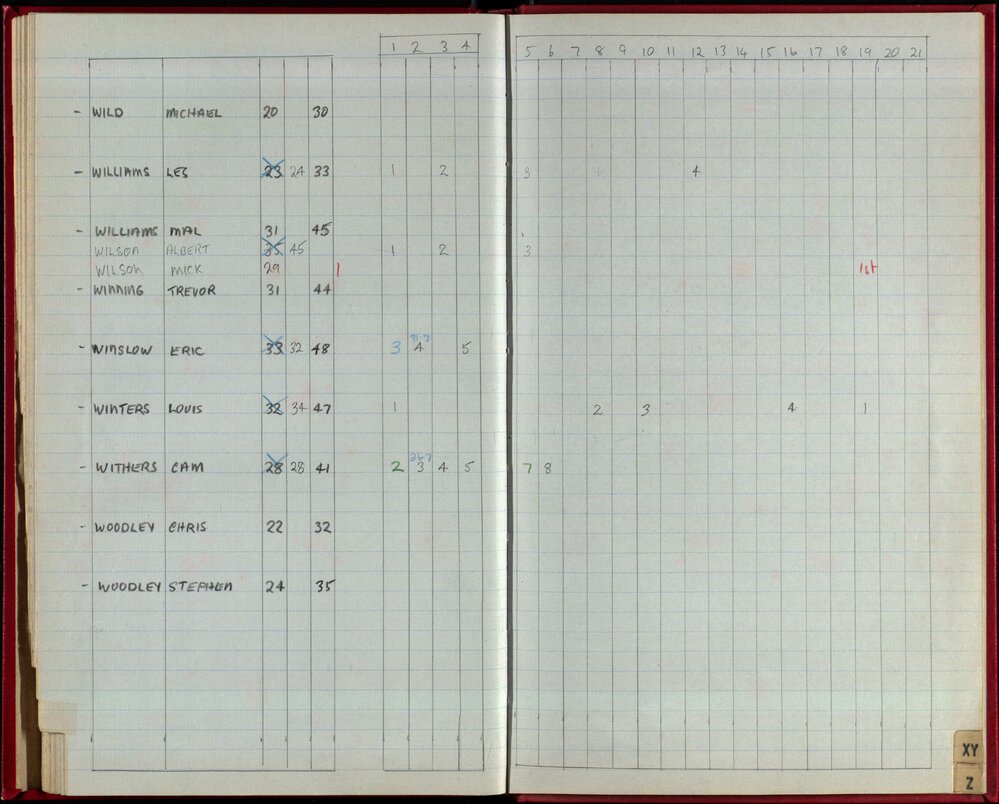 1 2 3 4 5 6 7 8 9 10 11 12 13 14 15 16 17 18 19 20 21
- WILD MICHAEL 20 30
- WILLIAMS LES 23 24 33 1 2 3 4
- WILLIAMS MAL 31 45
WILSON ALBERT 35 45 1 2 3
WILSON MICK 29 1 1st
- WINNING TREVOR 31 44
- WINSLOW ERIC 33 32 48 3 4 5
- WINTERS LOUIS 32 34 47 1 2 3 4 1
- WITHERS CAM 28 28 41 2 3 4 5 7 8
- WOODLEY CHRIS 22 32
- WOODLEY STEPHEN 24 35
XY
Z